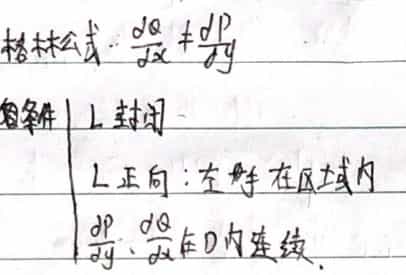 格林公式. ∂Q/∂x ≠ ∂P/∂y
条件 L封闭
L正向:左手在区域内
∂P/∂y、∂Q/∂x在D内连续.